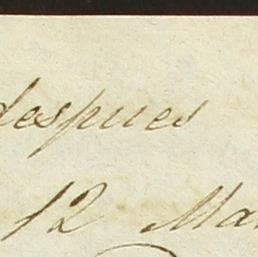 despues
12 Ma